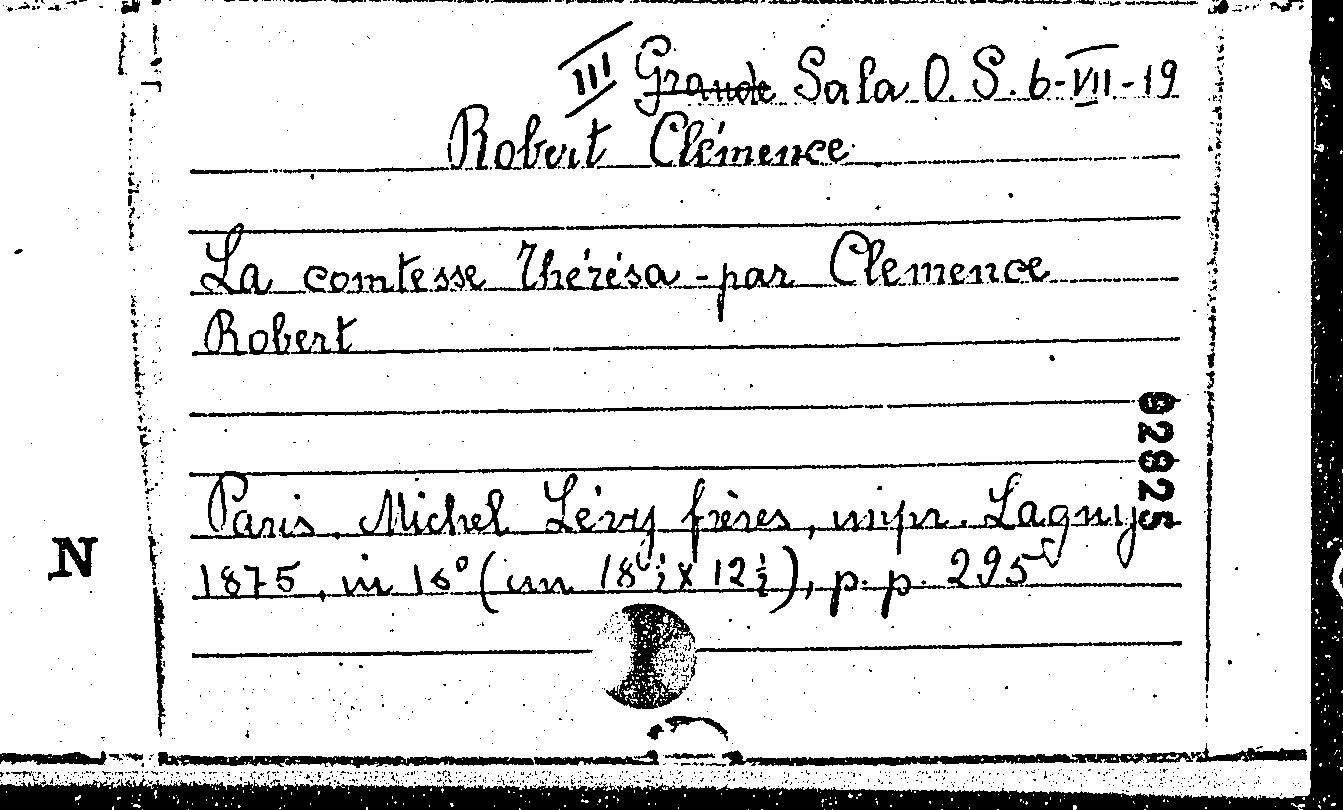 III Grande Sala O. S. 6-VII-19
Robert Clémence
La comtesse Thérésa - par Clemence
Robert
02825
Paris. Michel Lévy frères, impr. Lagny
N
1875, in 16° (cm 18 ½ x 12 ½), p. p. 295